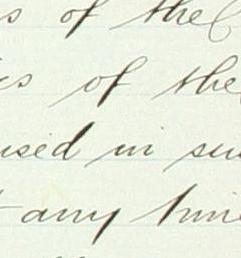 s of the
es of the
used in su
any time